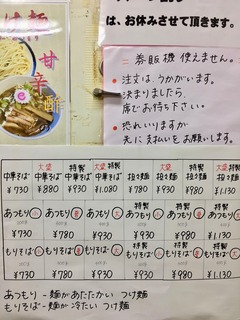 は、お休みさせて頂きます。
甘辛酢
券販機 使えません。
・注文は うかがいます。
決まりましたら、
席でお待ち下さい。
・恐れいりますが
先に支払いをお願いします。
中華そば ¥730
大盛 中華そば ¥880
特製 中華そば ¥930
大盛 特製 中華そば ¥1.080
担々麺 ¥780
大盛 担々麺 ¥930
特製 担々麺 ¥980
大盛 特製 担々麺 ¥1.130
あつもり 小 ¥730
あつもり ¥780
あつもり 大 ¥930
特製 あつもり 小 ¥930
特製 あつもり ¥980
特製 あつもり 大 ¥1.130
もりそば 小 ¥730
もりそば ¥780
もりそば 大 ¥930
特製 もりそば 小 ¥930
特製 もりそば ¥980
特製 もりそば 大 ¥1.130
あつもり − 麺があたたかい つけ麺
もりそば − 麺が冷たい つけ麺